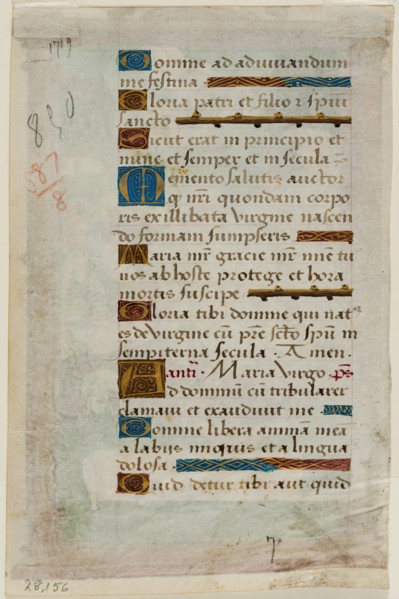 1719
850
87
8
Domine ad adiuuandum
me festina
Gloria patri et filio z spiri
sancto
Sicut erat in principio et
nunc et semper et in secula
Memento salutis auctor
q nri quondam corpo
ris ex illibata virgine nascen
do formam sumpseris
Maria mr gracie mr mie tu
nos ab hoste protege et hora
mortis suscipe
Gloria tibi domine qui nat
es de virgine cu pre scto spu in
sempiterna secula . Amen .
anti . Maria virgo ps
Ad dominu cu tribularer
clamaui et exaudiuit me
Domine libera animam mea
a labiis iniquis et a lingua
dolosa .
Quid detur tibi aut quid
7
28,156